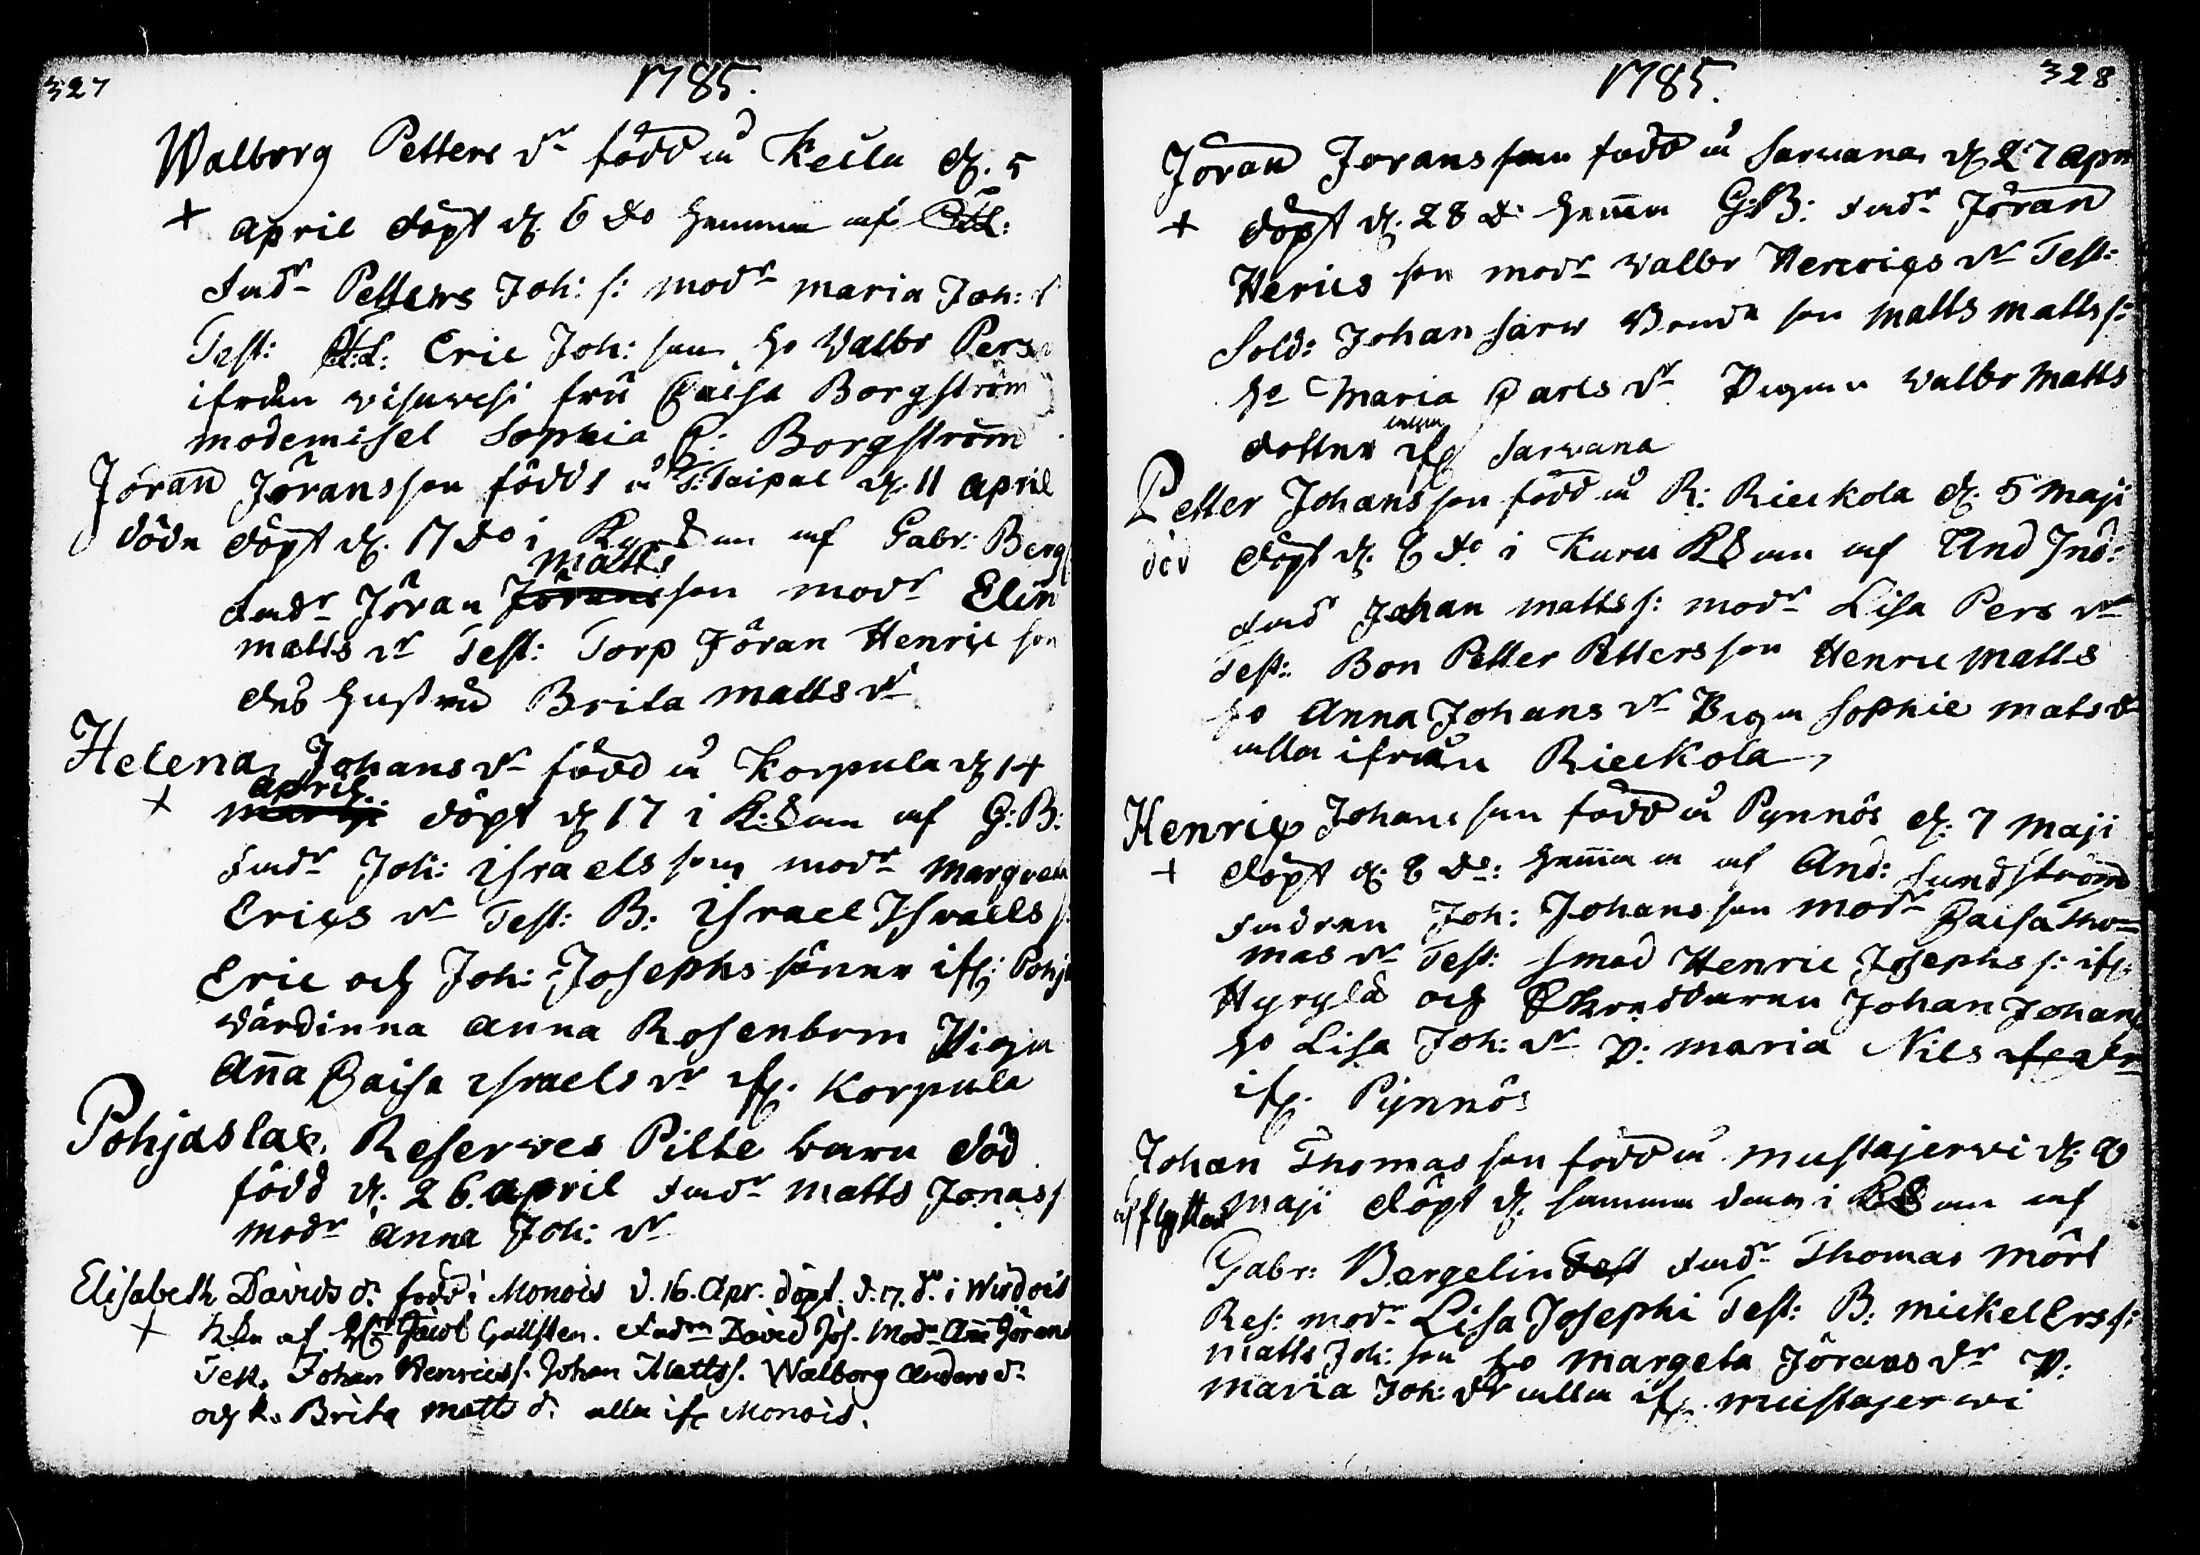 327
1785.
Walborg Petters dr född å Keilu d. 5
+ april döpt d. 6 do hemma af
fadr Petters Joh: s: modr maria Joh: d
Test: Eric Joh: son ho Valbr Pers
ifrån visuvesi fru Caisa Borgström
modemisel Sophia C: Borgström
Jöran Jöransson födds å T: Taipal d. 11 april
döde döpt d. 17 do i af Gabr: Berg
Matts
fadr Jöran Jörans son modr Elin
matts dr Test: Torp Jöran Henric son
des hustru Brita Matts dr
Helena Johans dr född å Korpula d 14
april
+ martji döpt d 17 i K:San af G:B:
fadr Joh: israels son modr margreta
Erics dr Test: B: israel Israels s:
Eric och Joh: Josephs söner ifr: Pohj
värdinna anna Rosenbom Pigan
Anna Caisa israels dr ifr. Korpula
Pohjaslax. Reserves Pilte barn död
född d. 26. april fadr matts Jonas s
modr anna Joh: dr
Elisabeth Davids d. född i Monois d. 16. Apr. döpt. d. 17. do. i Wirdois
+ k:kn af Jacob Gallsten. fadren David Jos. Modn Ann Jörans
Test. Johan Henricss. Johan Mattss. Walborg Anders d.
och p. Brita matts d. alla ifr Monois.
1785.
328.
Jöran Jorans son född å Sarvana d. 27 apr
+ döpt d. 28 d: hemma G:B: fadr Jöran
Herics son modr valbr Henrics dr Test:
Sold: Johan Sarv Bonda son matts matts s:
ho Maria Carls dr Pigan valbr Matts
dotter ifr Sarvana
Petter Johans son född å R: Rieckola d. 5 maji
död döpt d. 6 do i Kuru KSan af And Ind:
fadr Johan matts s: modr Lisa Pers dr
Test: Bon Petter Petters son Henric matts
ho Anna Johans dr Pigan Sophie mats d
alla ifrån Rieckola
Henric Johans son född å Pynnös d. 7 maji
+ döpt d. 8 do: hemma af And: Sundström
fadren Joh: Johans son modr Caisa tho=
mas dr Test: smed Henric Josephs s: ifr:
Hyrylä och Johan Johans
ho Lisa Joh: dr P: maria Nils
ifr. Pynnös
Johan Thomas son född å mustajervi d. 8
afflyttad maji döpt d. samma dag i KSan af
Gabr: Bergelin Test fadr Thomas mört
Res: modr Lisa Josephi Test: B: mickel Ers s:
matts Joh: son ho margeta Jörans dr P:
maria Joh: dr alla ifr. mustajerwi